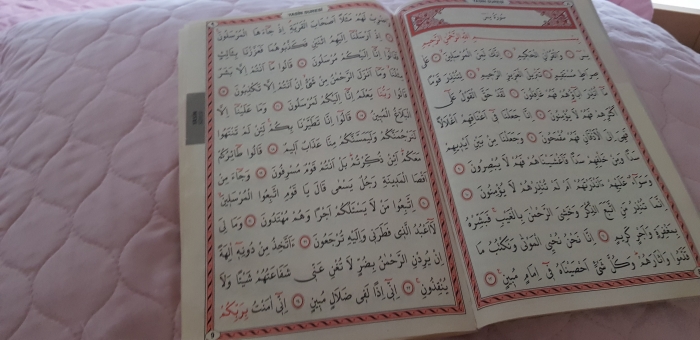 سورة يس
بسم الله الرحمن الرحيم
يس ۝ والقرآن الحكيم ۝ إنك لمن المرسلين ۝ على
صراط مستقيم ۝ تنزيل العزيز الرحيم ۝ لتنذر قوما
ما أنذر آباؤهم فهم غافلون ۝ لقد حق القول على
أكثرهم فهم لا يؤمنون ۝ إنا جعلنا في أعناقهم أغلالا
فهي إلى الأذقان فهم مقمحون ۝ وجعلنا من بين أيديهم
سدا ومن خلفهم سدا فأغشيناهم فهم لا يبصرون ۝
وسواء عليهم ءأنذرتهم أم لم تنذرهم لا يؤمنون ۝
إنما تنذر من اتبع الذكر وخشي الرحمن بالغيب فبشره
بمغفرة وأجر كريم ۝ إنا نحن نحيي الموتى ونكتب ما
قدموا وآثارهم وكل شيء أحصيناه في إمام مبين ۝
واضرب لهم مثلا أصحاب القرية إذ جاءها المرسلون
۝ إذ أرسلنا إليهم اثنين فكذبوهما فعززنا بثالث
فقالوا إنا إليكم مرسلون ۝ قالوا ما أنتم إلا بشر
مثلنا وما أنزل الرحمن من شيء إن أنتم إلا تكذبون ۝
قالوا ربنا يعلم إنا إليكم لمرسلون ۝ وما علينا إلا
البلاغ المبين ۝ قالوا إنا تطيرنا بكم لئن لم تنتهوا
لنرجمنكم وليمسنكم منا عذاب أليم ۝ قالوا طائركم
معكم أئن ذكرتم بل أنتم قوم مسرفون ۝ وجاء من
أقصا المدينة رجل يسعى قال يا قوم اتبعوا المرسلين
۝ اتبعوا من لا يسئلكم أجرا وهم مهتدون ۝ وما لي
لا أعبد الذي فطرني وإليه ترجعون ۝ ءأتخذ من دونه آلهة
إن يردن الرحمن بضر لا تغن عني شفاعتهم شيئا ولا
ينقذون ۝ إني إذا لفي ضلال مبين ۝ إني آمنت بربكم